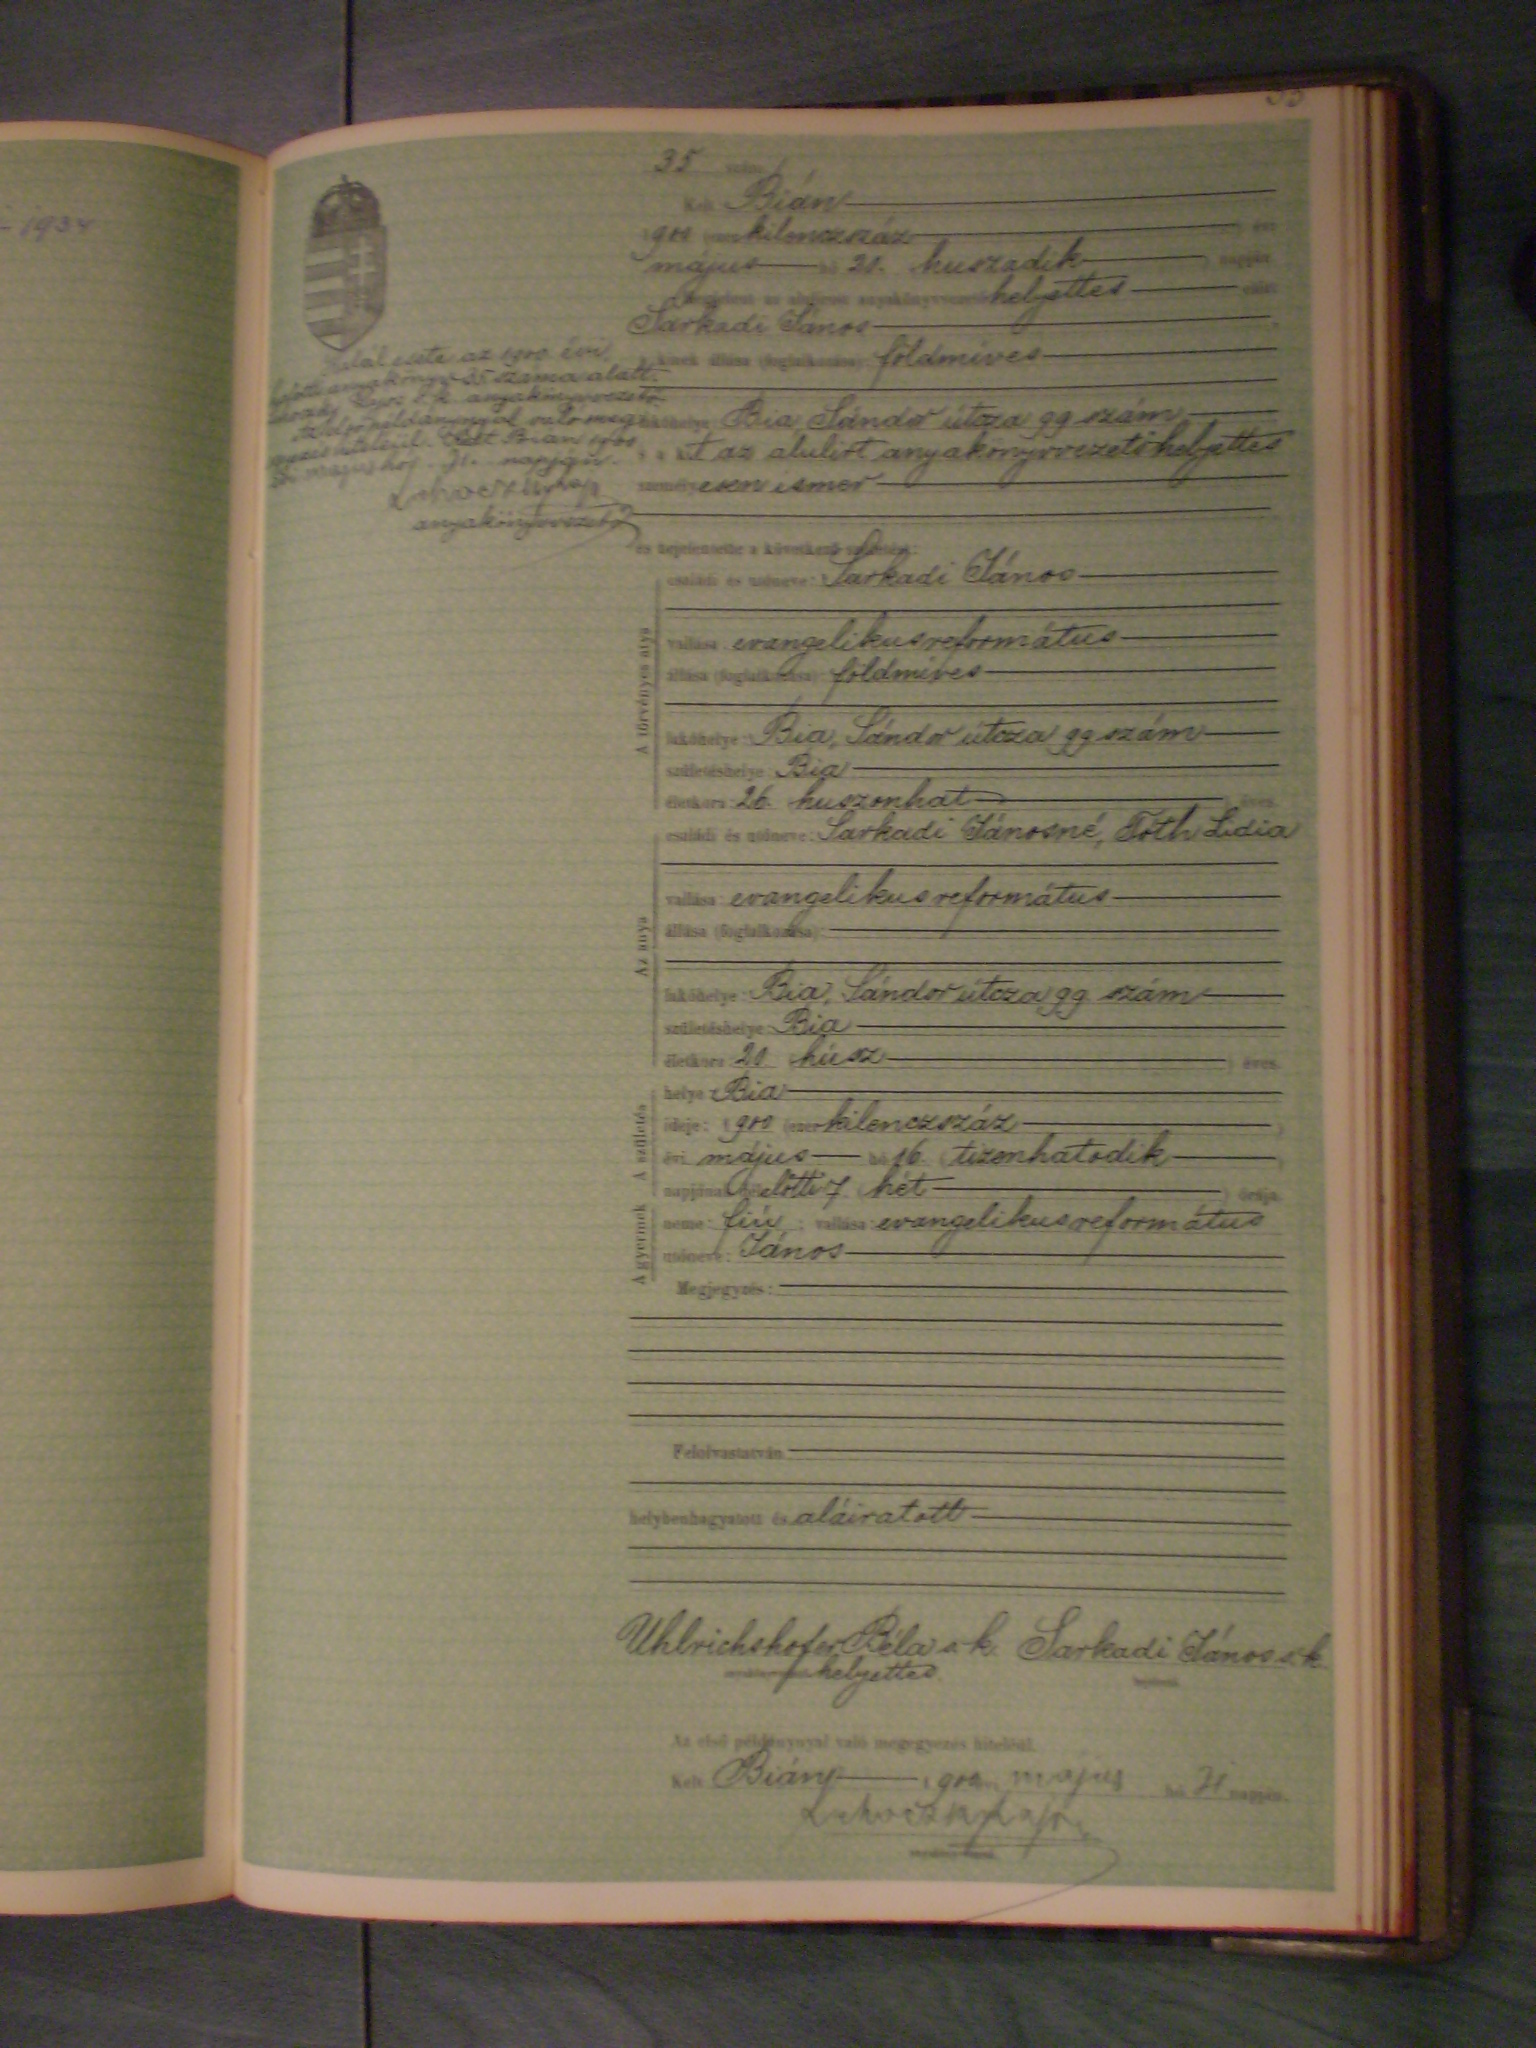 - 1934
35
35 szám
Kelt Bián
1900 (ezer kilenczszáz) évi
május hó 20. (huszadik) napján.
Megjelent az alulirott anyakönyvvezető helyettes előtt
Sarkadi János
a kinek állása (foglalkozása): földmives
lakóhelye: Bia Sándor útcza 99 szám
a kit az alulirt anyakönyvvezető helyettes
személyesen ismer
és bejelentette a következő születést:
A törvényes atya
családi és utóneve: Sarkadi János
vallása: evangelikus református
állása (foglalkozása): földmives
lakóhelye: Bia, Sándor útcza 99 szám
születéshelye: Bia
életkora: 26 (huszonhat) éves.
Az anya
családi és utóneve: Sarkadi Jánosné, Tóth Lidia
vallása: evangelikus református
állása (foglalkozása):
lakóhelye: Bia, Sándor útcza 99 szám
születéshelye: Bia
életkora: 20 (húsz) éves.
A születés
helye: Bia
ideje: 1900 (ezer kilenczszáz)
évi május hó 16. (tizenhatodik)
napjának délelőtti 7 (hét) órája
A gyermek
neme: fiú; vallása: evangelikus református
utóneve: János
Megjegyzés:
Felolvastatván
helybenhagyatott és aláiratott
Uhlrichshofer Béla s.k. Sarkadi János s.k.
helyettes.
Az első példánynyal való megegyezés hiteléül.
Kelt Bián, 1900 május hó 31 napján.
Halál esete az 1900. évi
halotti anyakönyv 35 száma alatt.
Lajos s.k. anyakönyvvezető
Az első példánynyal való meg-
egyezés hiteléül. Kelt Bián 1900
május hó 31. napján.
anyakönyvvezető